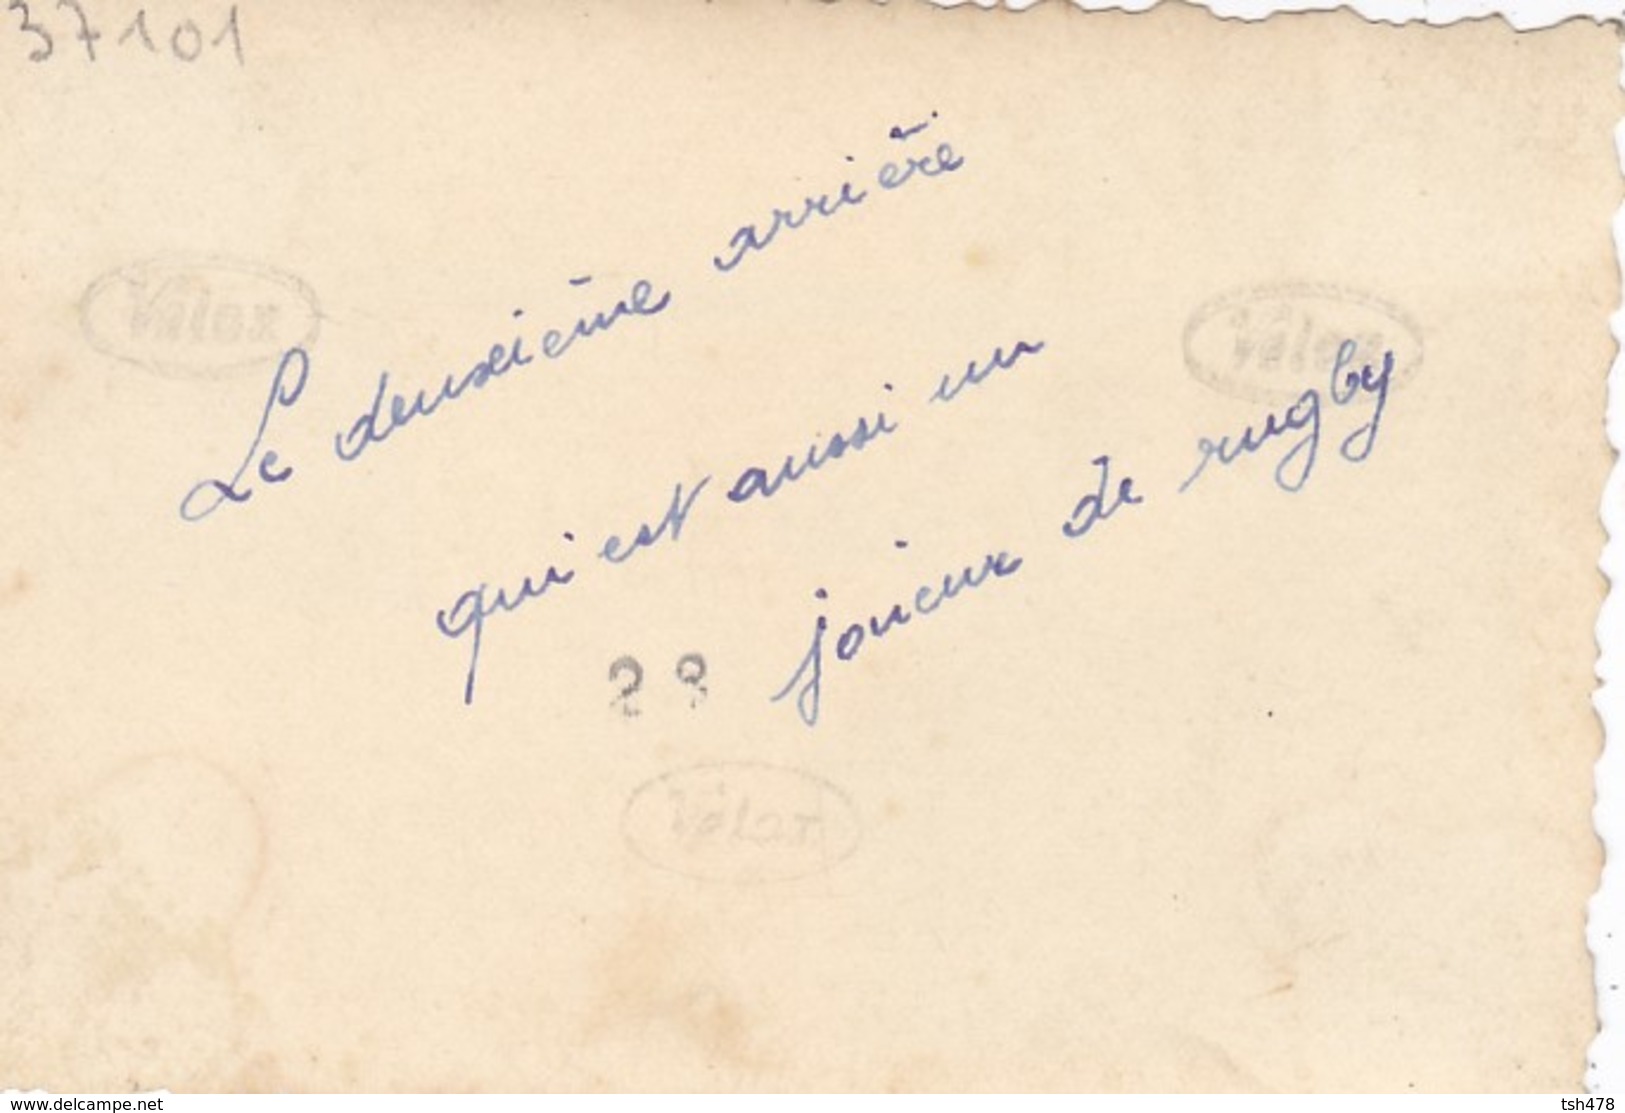 37101
Le deuxième arrière
Velox
Velox
qui est aussi un
joueur de rugby
28
Velox
www.delcampe.net
tsh478